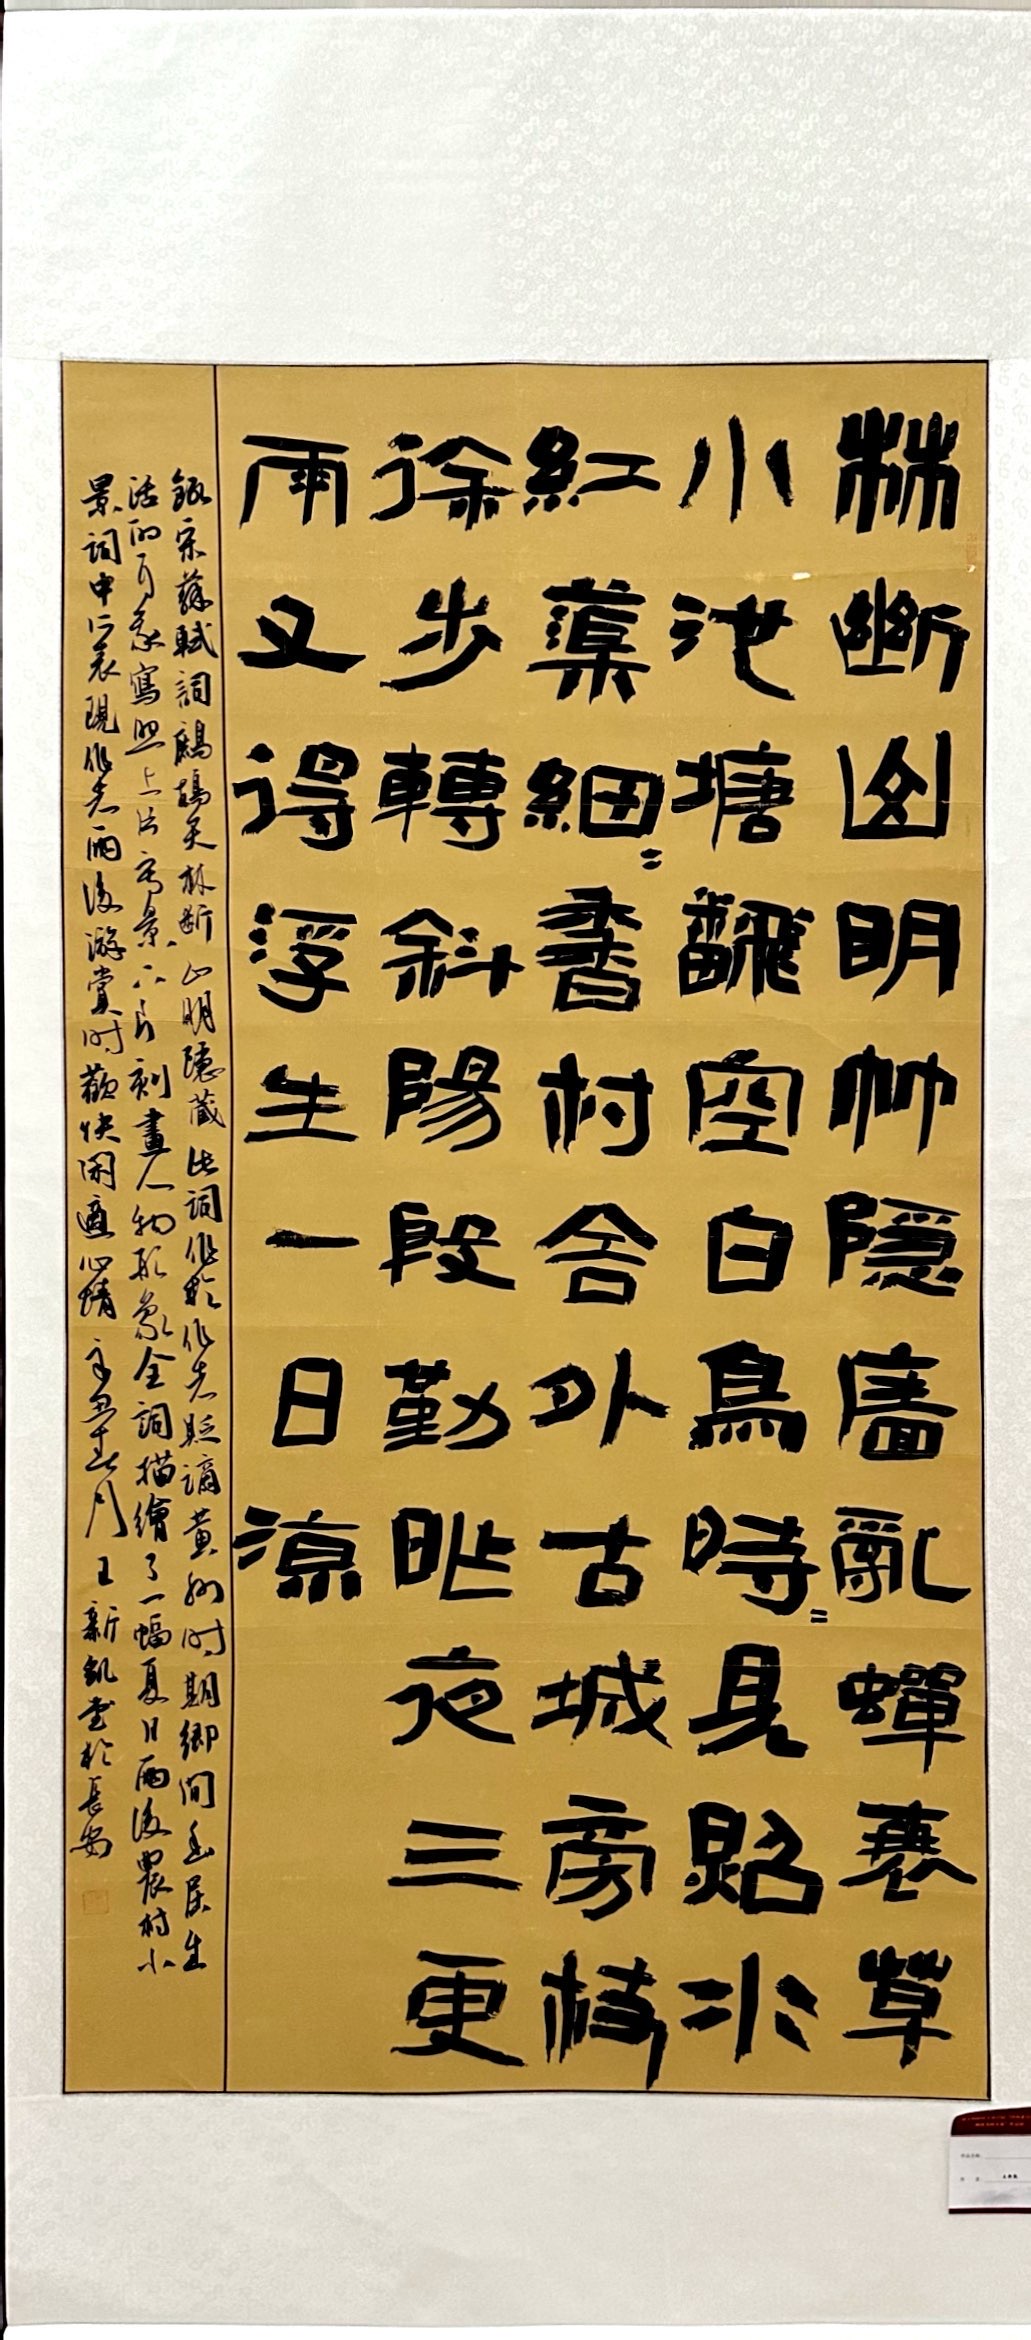 林斷山明竹隱廧亂蟬衰草
小池塘飜空白鳥時=見照水
紅蕖細=香村舍外古城旁杖
徐步轉斜陽殷勤昨夜三更
雨又得浮生一日涼
錄宋蘇軾詞鷓鴣天林斷山明隱藏此詞作於作者貶謫黃州时期鄉間幽居生
活的自我寫照上片寫景下片刻畫人物形象全詞描繪了一幅夏日雨後農村小
景詞中所表現作者雨後游賞时歡快閑適心情月王新凱書於長安